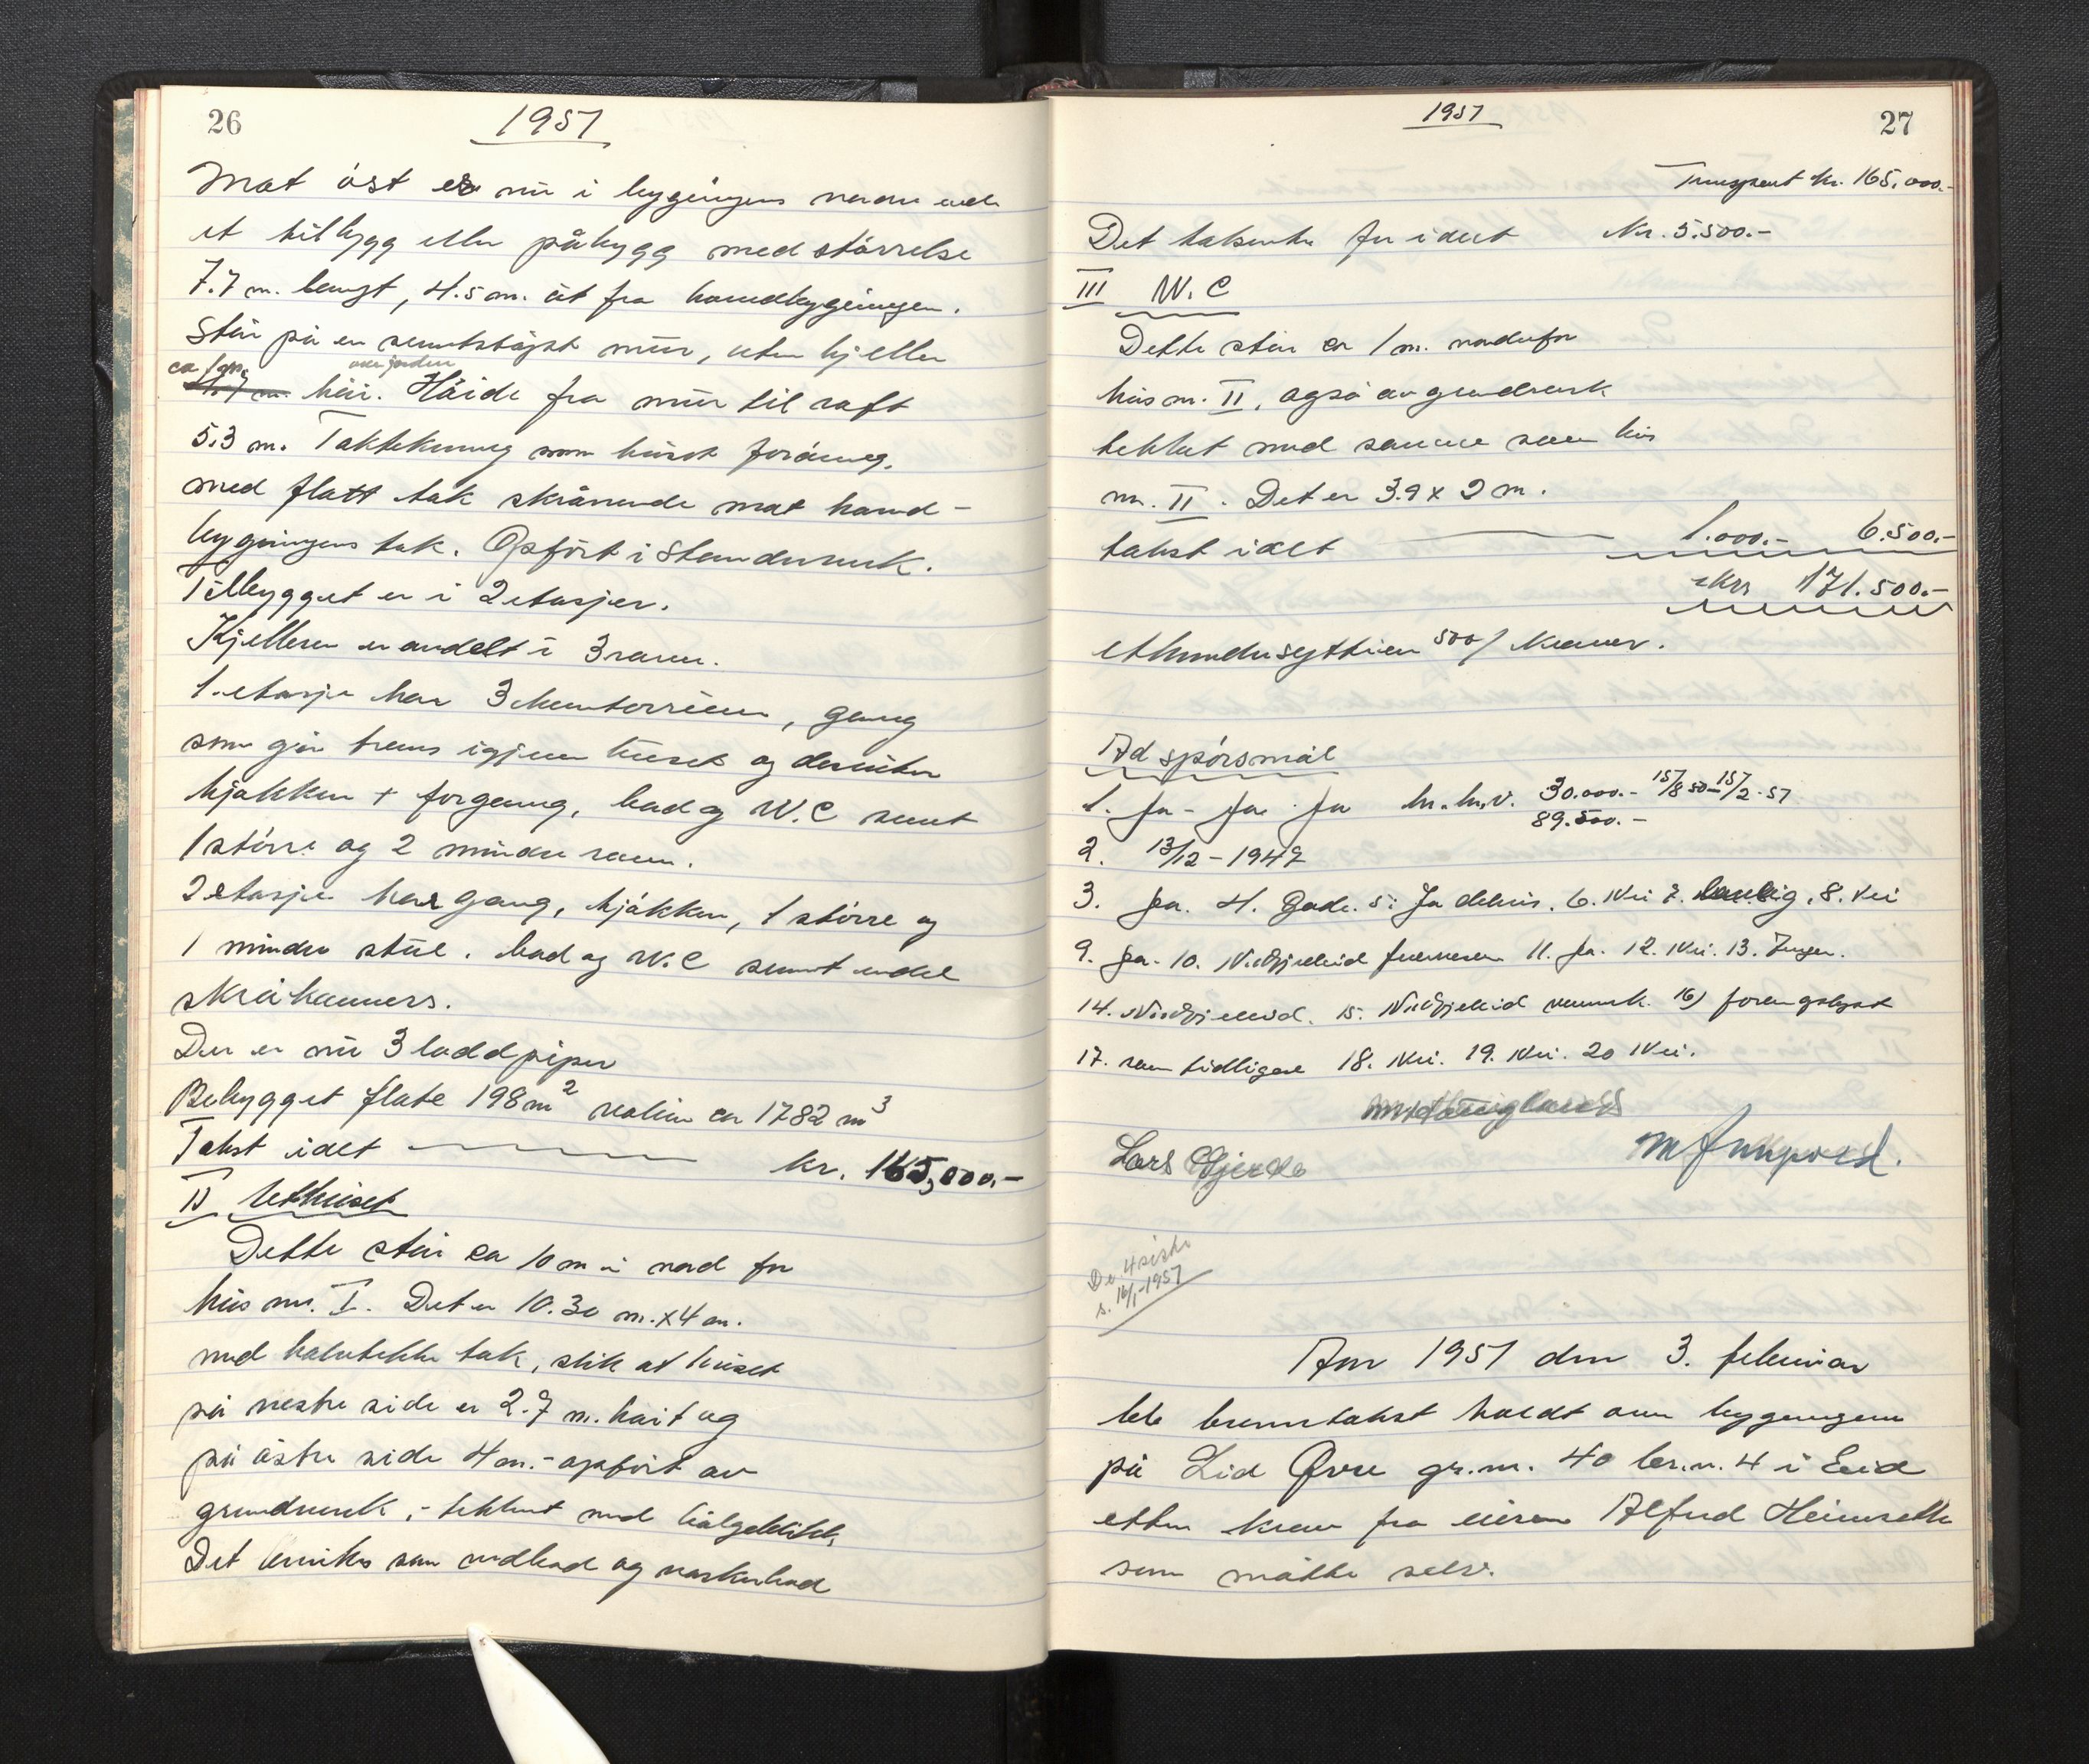 26
1951
Mot øst er nu i bygningens nedre ende
et tilbygg eller påbygg med størrelse
7.7 m. langt, 4.5 m. ut fra hovedbygningen.
Står på en sementstøpt mur, uten kjeller
ca 1 m. over jorden
høi. Høide fra mur til raft
5.3 m. Taktekning som huset forøvrig,
med flatt tak skrånende mot hoved-
bygningens tak. Opført i Stenderverk.
Tilbygget er i 2 etasjer.
Kjelleren er avdelt i 3 rom.
1. etasje har 3 kontorrum, gang
som går tvers igjennem huset og desuten
kjøkken + forgang, bad og W.C samt
1 større og 2 mindre rom.
2 etasje har gang, kjøkken, 1 større og
1 mindre stue. bad og W.C samt endel
skråkammers.
Der er nu 3 loddpiper
Bebygget flate 198 m² volum ca 1782 m³
Takst ialt kr. 165,000.-
II Uthuset
Dette står ca 10 m i nord for
hus nr. I. Det er 10.30 m. x 4 m.
med halvtekke tak, slik at huset
på vestre side er 2.7 m. høit og
på østre side 4 m. - opført av
grindverk, - tekket med bølgeblikk,
Det brukes som vedbod og vaskebod
1951
27
Transport kr. 165,000.-
Det taksertes for ialt Kr. 5.500.-
III W.C
Dette står ca 1 m. nordenfor
hus nr. II, også av grindverk
tekket med samme som hus
nr. II. Det er 3.9 x 2 m.
takst ialt 1.000.- 6.500.-
kr 171.500.-
ethundresyttien 500/ kroner.
Ad spørsmål
1. Ja - Ja. Ja 30.000.- 15/8 50 - 15/2 - 51
89.500.-
2. 13/12 - 1949
3. Ja. 4. Gode. 5: Ja delvis. 6. Nei 7. 8. Nei
9. Ja. 10. Vedkjeleid 11. Ja. 12. Nei. 13. Ingen.
14. 15. 16)
17. som tidligere 18. Nei. 19. Nei. 20 Nei.
Lars Gjerde
De 4 siste
s. 16/1-1951
Anr 1951 den 3. februar
ble branntakst holdt over bygningene
på Lid Øvre gr.nr. 40 br.n. 4 i Eid
etter krav fra eieren Alfred Heimseth
som møtte selv.